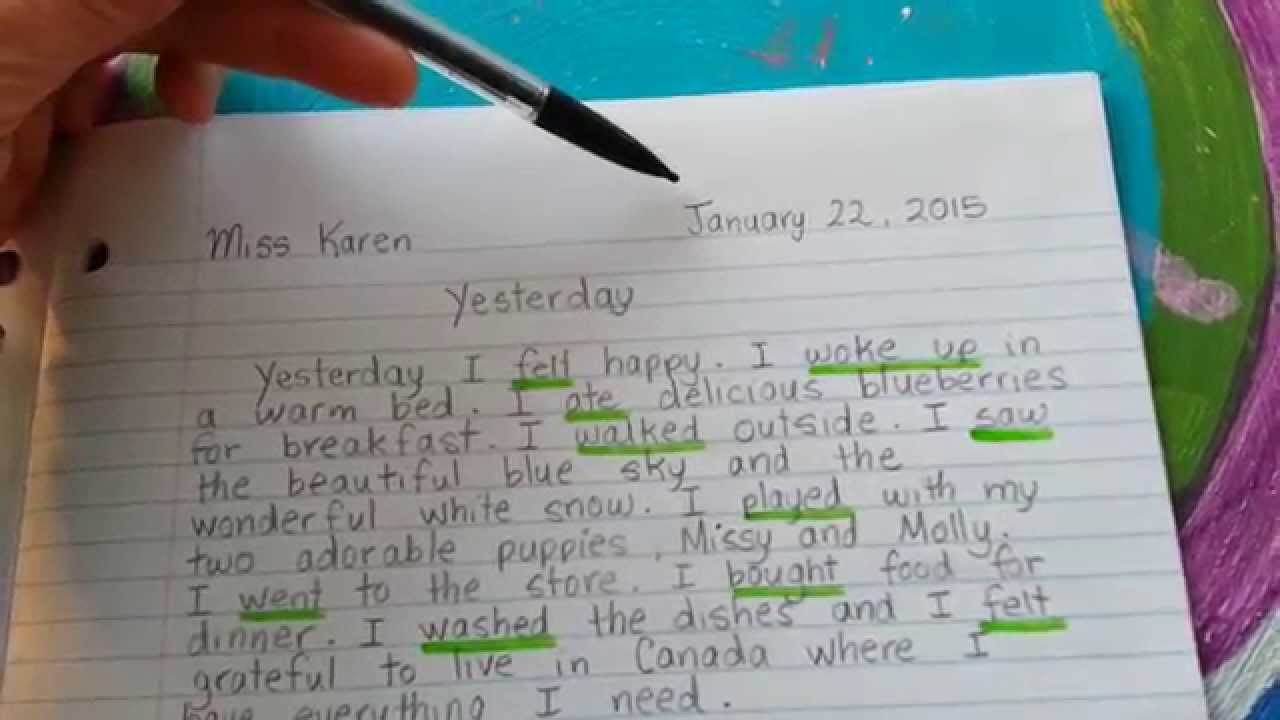 Miss Karen
January 22, 2015
Yesterday
Yesterday I felt happy. I woke up in
a warm bed. I ate delicious blueberries
for breakfast. I walked outside. I saw
the beautiful blue sky and the
wonderful white snow. I played with my
two adorable puppies, Missy and Molly.
I went to the store. I bought food for
dinner. I washed the dishes and I felt
grateful to live in Canada where I
have everything I need.